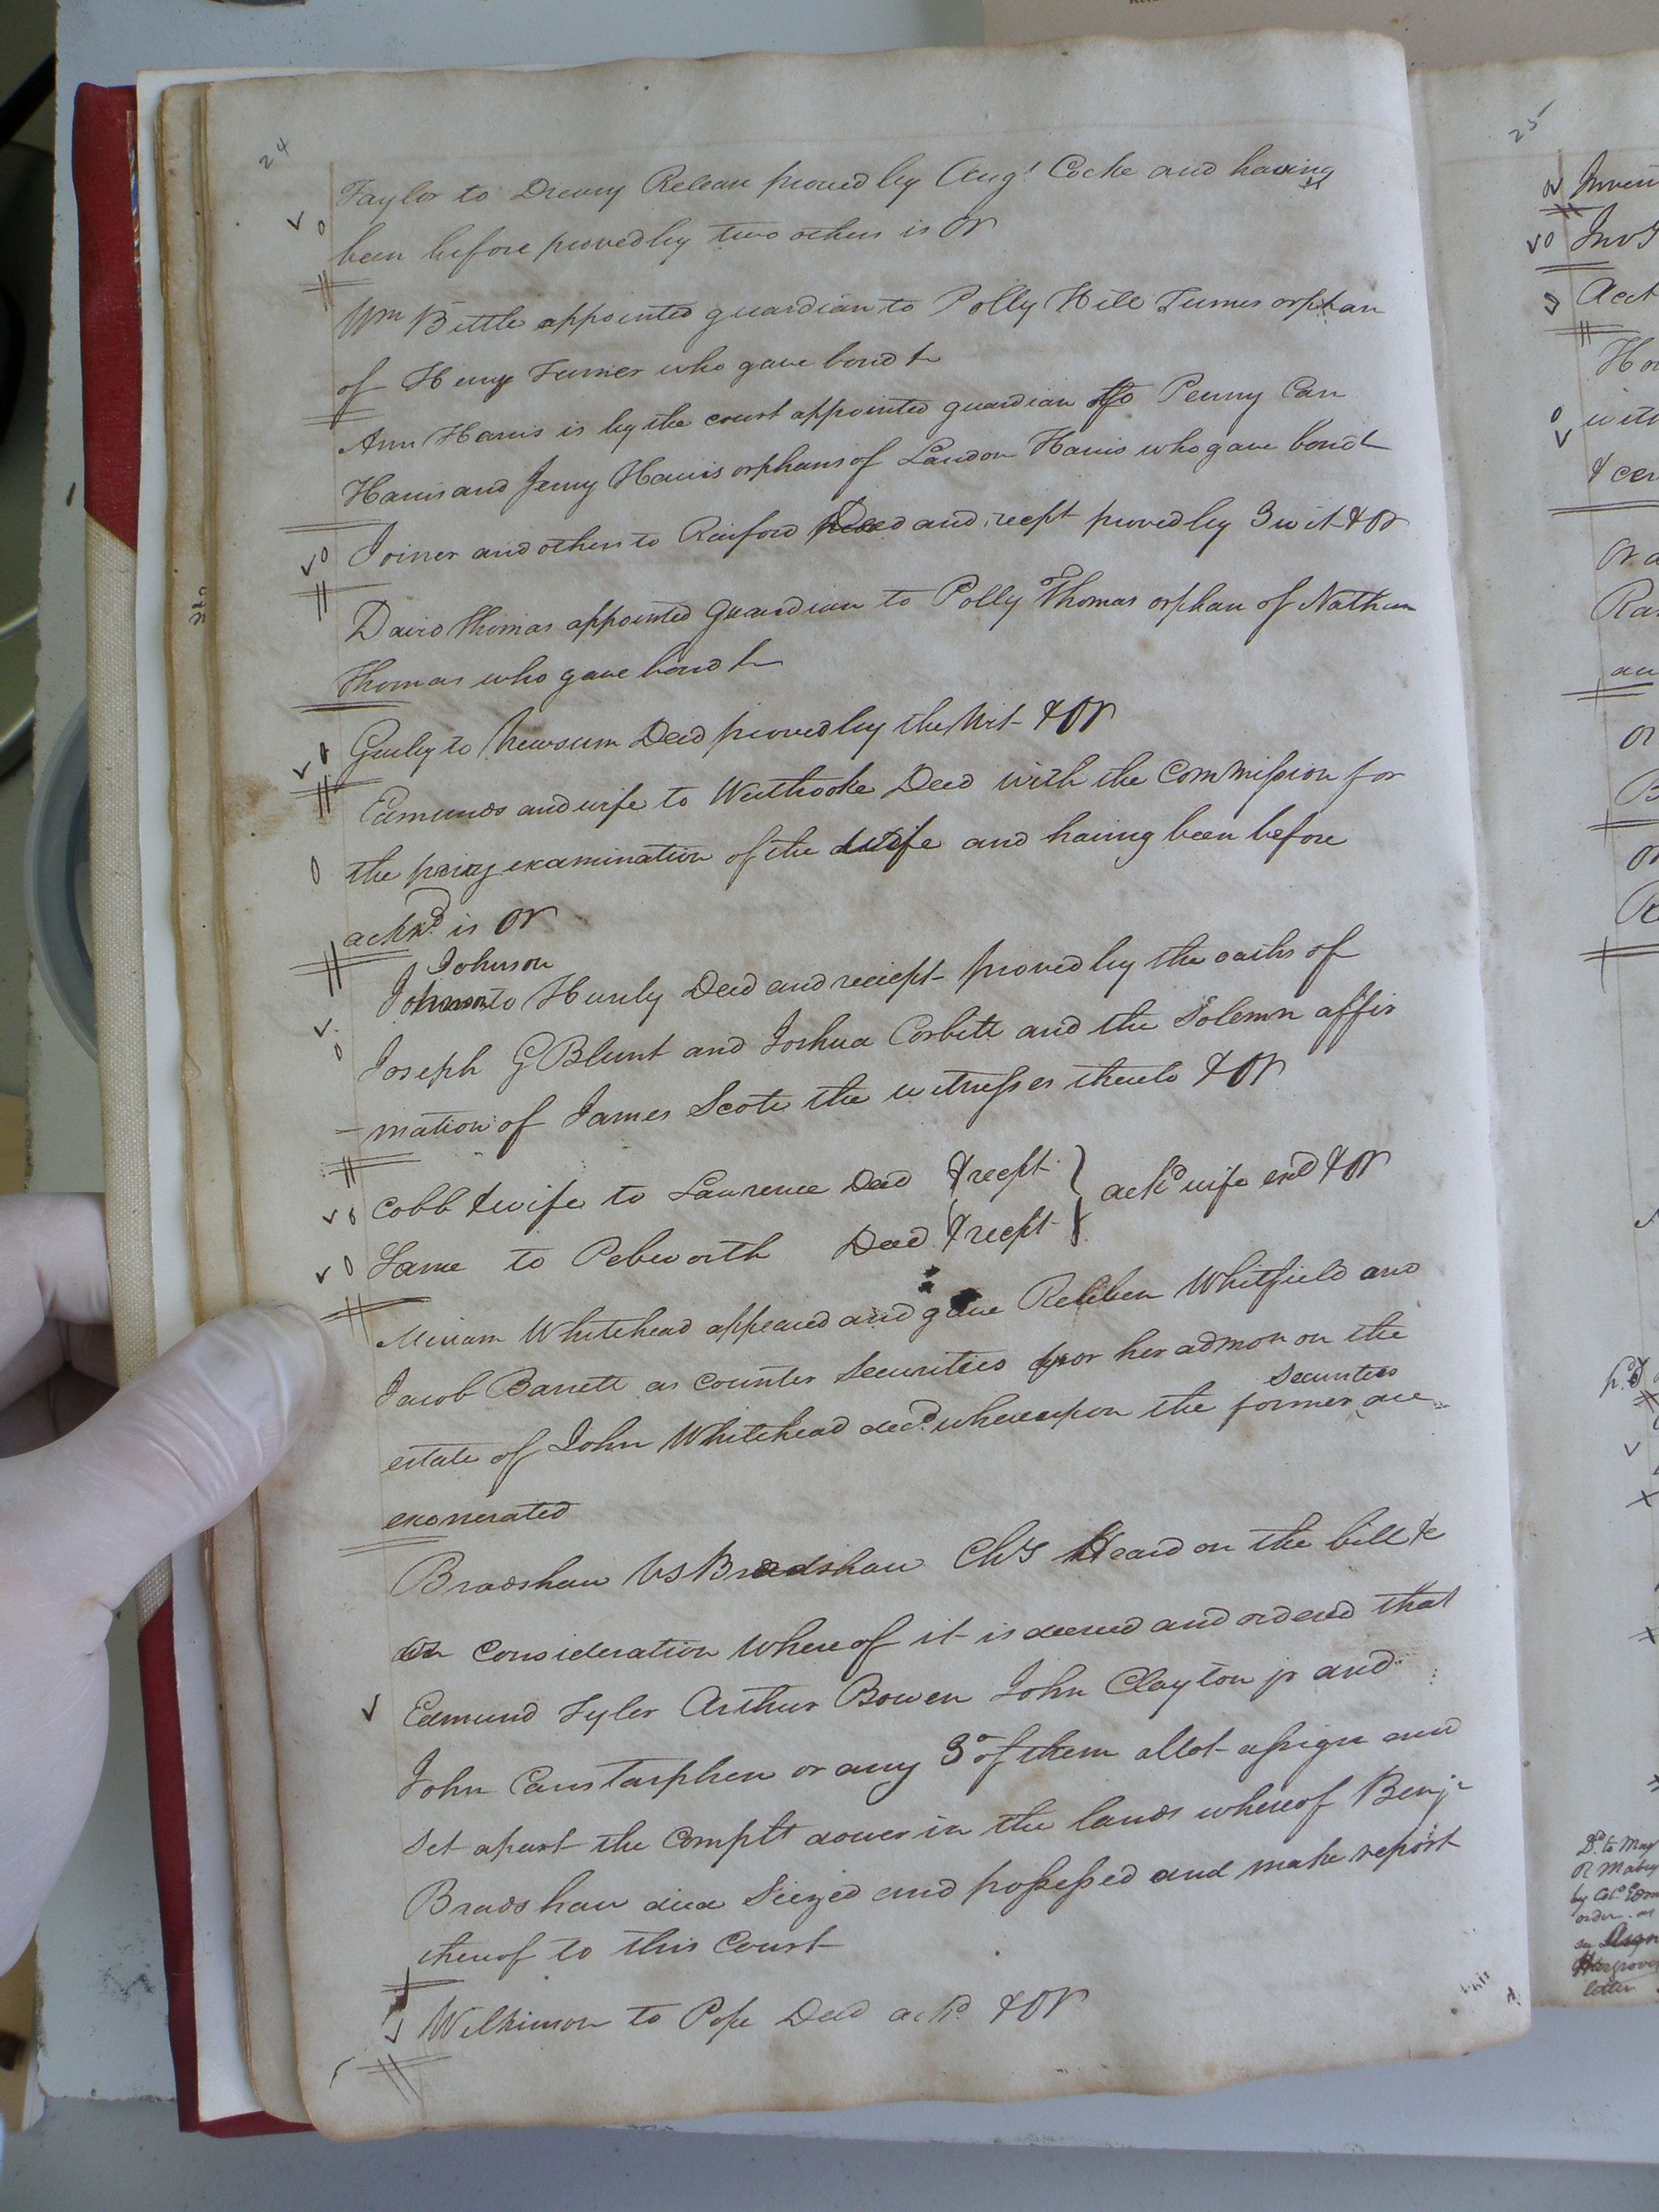 24
Taylor to Drewry Release proved by Augt Cocke and having
been before proved by two others is OR
Wm Bittle appointed guardian to Polly Hill Turner orphan
of Henry Turner who gave bond &
Ann Harris is by the court appointed guardian to Penny Carr
Harris and Jenny Harris orphans of Landon Harris who gave bond &
Joiner and others to Raiford Deed and recpt proved by 3 wit & OR
David Thomas appointed Guardian to Polly Thomas orphan of Nathan
Thomas who gave bond &
Gurley to Newsum Deed proved by the Wit & OR
Edmunds and wife to Westbrooke Deed with the Commission for
the privy examination of the wife and having been before
ackd. is OR
Johnson
Johnson to Hunly Deed and reciept proved by the oaths of
Joseph G Blunt and Joshua Corbett and the Solemn affir
mation of James Scott the witnesses thereto & OR
Cobb & wife to Lawrence Deed & recpt } ackd wife exd & OR
Same to Pebworth Deed & recpt }
Miriam Whitehead appeared and gave Reuben Whitfield and
Jacob Barrett as counter Securities for her admon on the
Securities
estate of John Whitehead decd. whereupon the former are
exonerated
Bradshaw Vs Bradshaw ChY Heard on the bill &c
On Consideration whereof it is decreed and ordered that
Edmund Tyler Arthur Bowen John Clayton jr and
John Canstarphen or any 3 of them allot assign and
Set apart the Complt dower in the lands whereof Benjn
Bradshaw died Siezed and possessed and make report
thereof to this Court
Wilkinson to Pope Deed ackd. & OR
25
InvY
Acct
with
& cer
OR
Dd. to May
R Mabry
by Colo. Edm
order
letter